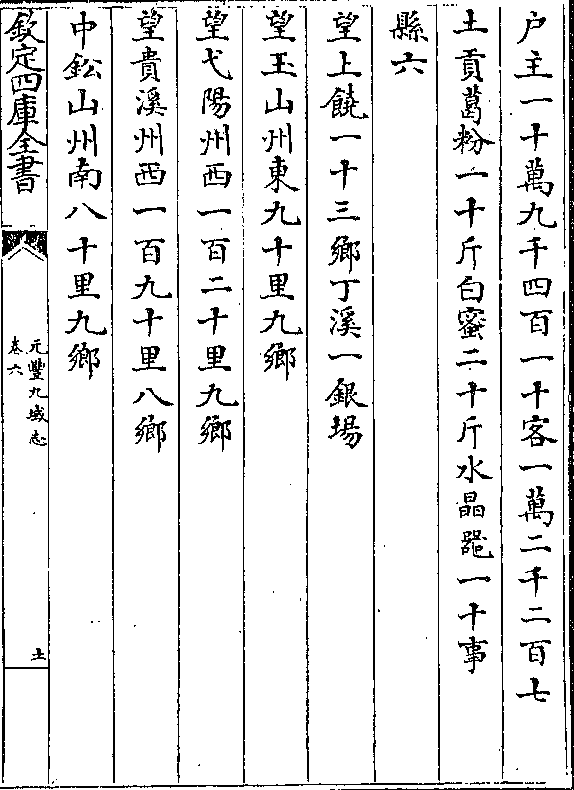 户主一十萬九千四百一十客一萬二千二百七
土貢葛粉一十斤白蜜二十斤水晶器一十事
縣六
望上饒一十三鄉丁溪一銀場
望玉山州東九十里九鄉
望弋陽州西一百二十里九鄉
望貴溪州西一百九十里八鄉
中鈆山州南八十里九鄉
欽定四庫全書
元豐九域志
卷六